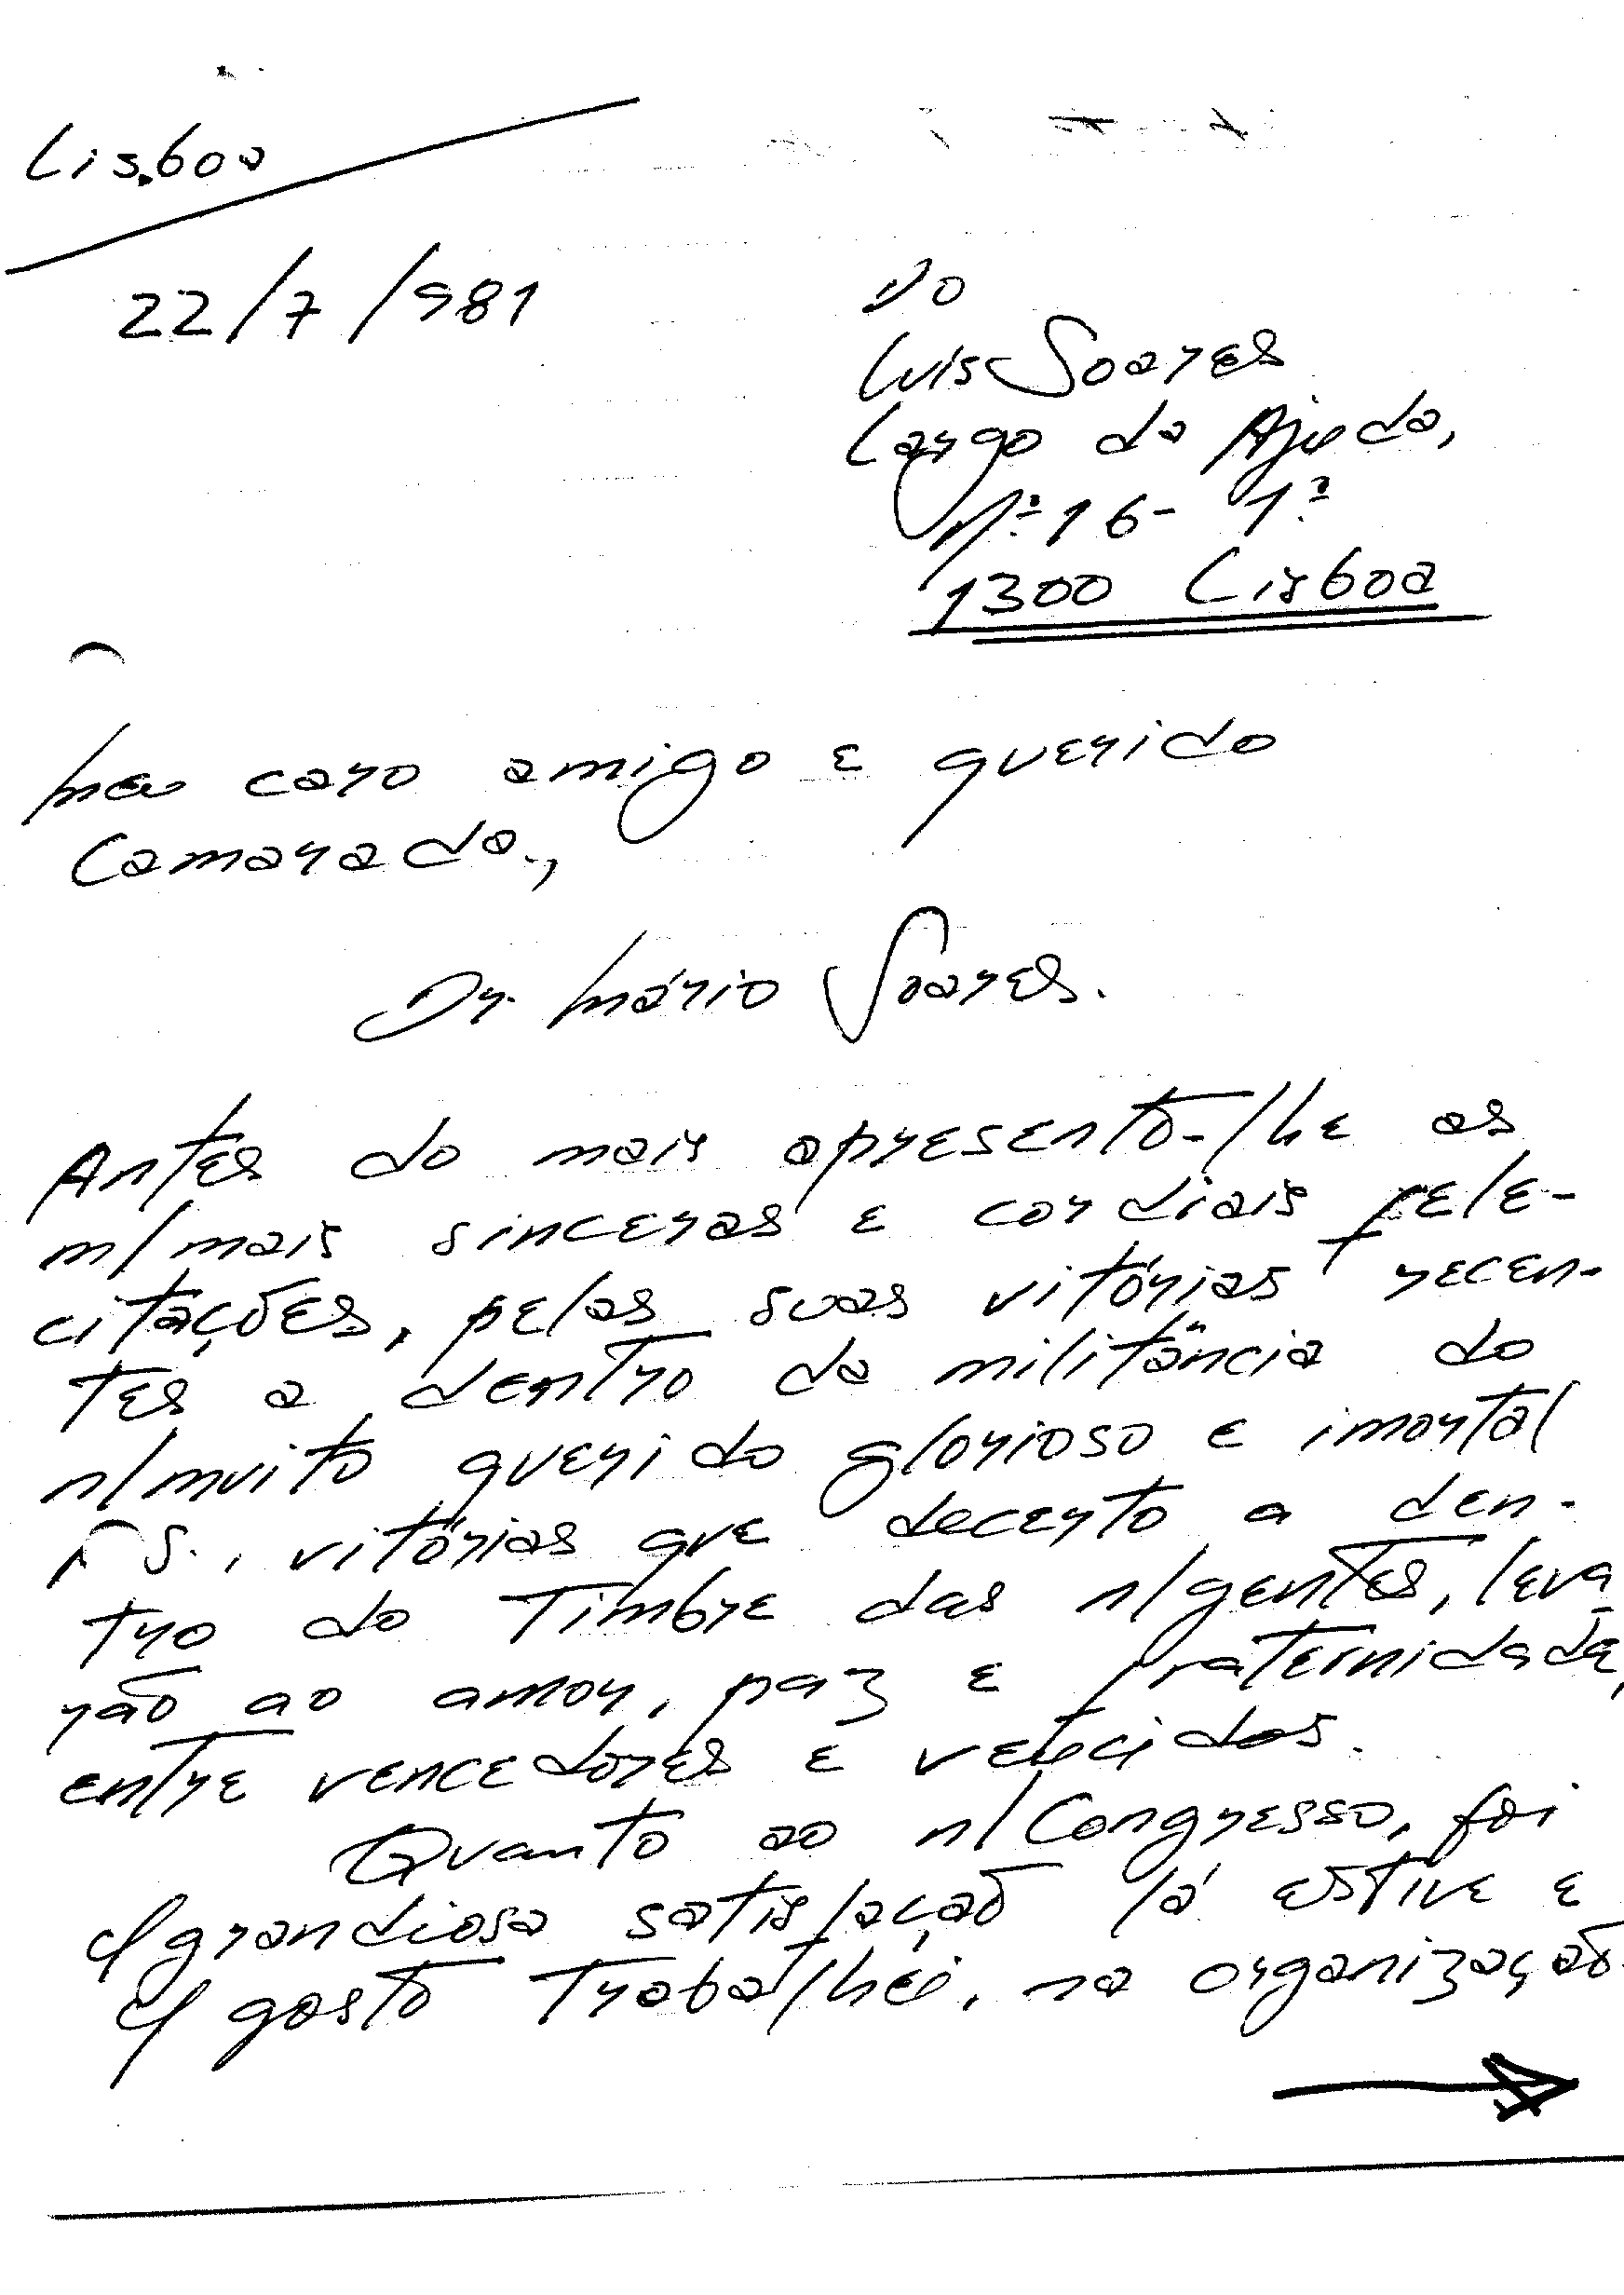 Lisboa
22/7/981
Do
Luís Soares
Largo da Ajuda,
nº 16 - 1º
1300 Lisboa
Meu caro amigo e querido
Camarada,
Dr. Mário Soares.
Antes do mais apresento-lhe as
m/mais sinceras e cordiais fele-
citações, pelas suas vitórias recen-
tes a dentro da militância do
n/muito querido glorioso e imortal
PS., vitórias que decerto a den-
tro do timbre das n/gentes, leva-
rão ao amor, paz e fraternidade,
entre vencedores e vencidos.
Quanto ao n/Congresso, foi
c/grandiosa satisfação lá estive e
c/ gosto trabalhei, na organização